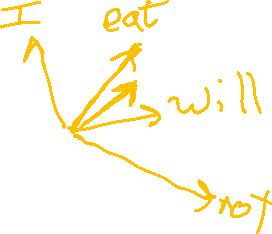 I eat
will
not